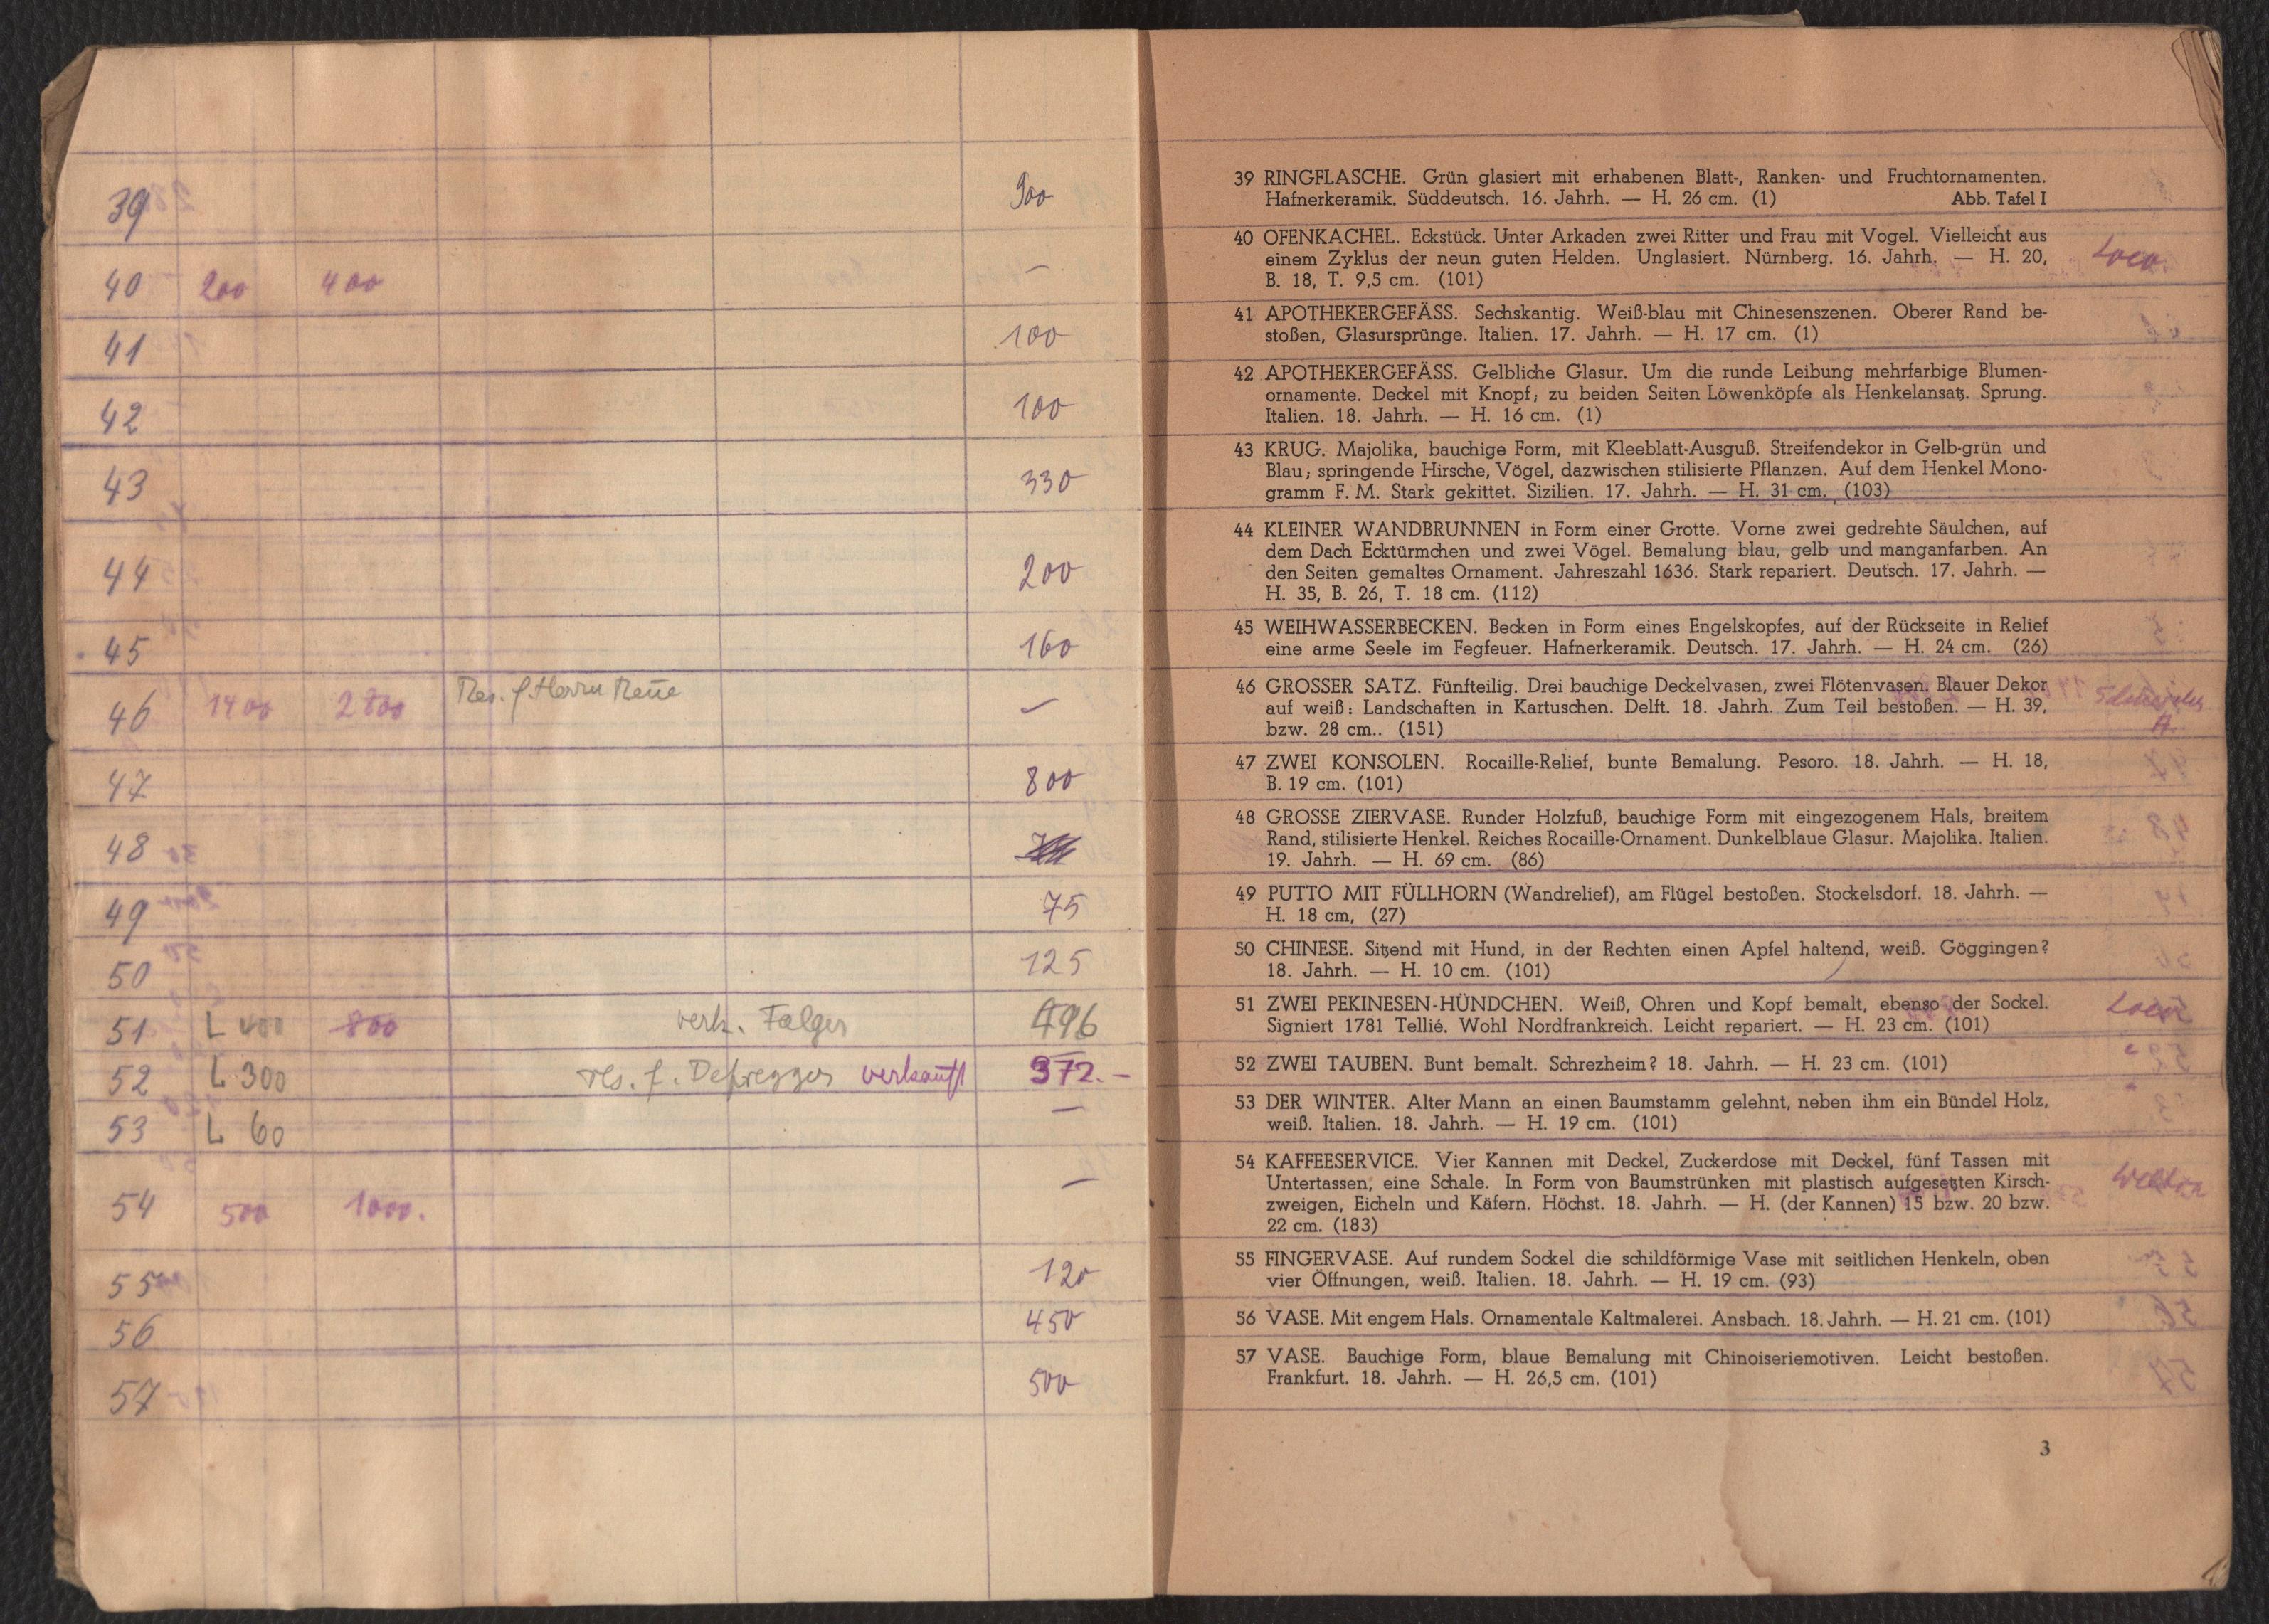 39 900
40 200 400 —
41 100
42 100
43 330
44 200
45 160
46 1400 2800 Res. f. Herrn —
47 800
48
49 75
50 125
51 L 400 800 verk. Falger 496
52 L 300 res. f. Defregger verkauft 372.-
53 L 60 —
54 500 1000. —
55 120
56 450
57 500
39 RINGFLASCHE. Grün glasiert mit erhabenen Blatt-, Ranken- und Fruchtornamenten.
Hafnerkeramik. Süddeutsch. 16. Jahrh. — H. 26 cm. (1) Abb. Tafel I
40 OFENKACHEL. Eckstück. Unter Arkaden zwei Ritter und Frau mit Vogel. Vielleicht aus
einem Zyklus der neun guten Helden. Unglasiert. Nürnberg. 16. Jahrh. — H. 20,
B. 18, T. 9,5 cm. (101)
41 APOTHEKERGEFÄSS. Sechskantig. Weiß-blau mit Chinesenszenen. Oberer Rand be-
stoßen, Glasursprünge. Italien. 17. Jahrh. — H. 17 cm. (1)
42 APOTHEKERGEFÄSS. Gelbliche Glasur. Um die runde Leibung mehrfarbige Blumen-
ornamente. Deckel mit Knopf; zu beiden Seiten Löwenköpfe als Henkelansatz. Sprung.
Italien. 18. Jahrh. — H. 16 cm. (1)
43 KRUG. Majolika, bauchige Form, mit Kleeblatt-Ausguß. Streifendekor in Gelb-grün und
Blau; springende Hirsche, Vögel, dazwischen stilisierte Pflanzen. Auf dem Henkel Mono-
gramm F. M. Stark gekittet. Sizilien. 17. Jahrh. — H. 31 cm. (103)
44 KLEINER WANDBRUNNEN in Form einer Grotte. Vorne zwei gedrehte Säulchen, auf
dem Dach Ecktürmchen und zwei Vögel. Bemalung blau, gelb und manganfarben. An
den Seiten gemaltes Ornament. Jahreszahl 1636. Stark repariert. Deutsch. 17. Jahrh. —
H. 35, B. 26, T. 18 cm. (112)
45 WEIHWASSERBECKEN. Becken in Form eines Engelskopfes, auf der Rückseite in Relief
eine arme Seele im Fegfeuer. Hafnerkeramik. Deutsch. 17. Jahrh. — H. 24 cm. (26)
46 GROSSER SATZ. Fünfteilig. Drei bauchige Deckelvasen, zwei Flötenvasen. Blauer Dekor
auf weiß: Landschaften in Kartuschen. Delft. 18. Jahrh. Zum Teil bestoßen. — H. 39,
bzw. 28 cm.. (151)
47 ZWEI KONSOLEN. Rocaille-Relief, bunte Bemalung. Pesoro. 18. Jahrh. — H. 18,
B. 19 cm. (101)
48 GROSSE ZIERVASE. Runder Holzfuß, bauchige Form mit eingezogenem Hals, breitem
Rand, stilisierte Henkel. Reiches Rocaille-Ornament. Dunkelblaue Glasur. Majolika. Italien.
19. Jahrh. — H. 69 cm. (86)
49 PUTTO MIT FÜLLHORN (Wandrelief), am Flügel bestoßen. Stockelsdorf. 18. Jahrh. —
H. 18 cm, (27)
50 CHINESE. Sitzend mit Hund, in der Rechten einen Apfel haltend, weiß. Göggingen?
18. Jahrh. — H. 10 cm. (101)
51 ZWEI PEKINESEN-HÜNDCHEN. Weiß, Ohren und Kopf bemalt, ebenso der Sockel.
Signiert 1781 Tellié. Wohl Nordfrankreich. Leicht repariert. — H. 23 cm. (101)
52 ZWEI TAUBEN. Bunt bemalt. Schrezheim? 18. Jahrh. — H. 23 cm. (101)
53 DER WINTER. Alter Mann an einen Baumstamm gelehnt, neben ihm ein Bündel Holz,
weiß. Italien. 18. Jahrh. — H. 19 cm. (101)
54 KAFFEESERVICE. Vier Kannen mit Deckel, Zuckerdose mit Deckel, fünf Tassen mit
Untertassen, eine Schale. In Form von Baumstrünken mit plastisch aufgesetzten Kirsch-
zweigen, Eicheln und Käfern. Höchst. 18. Jahrh. — H. (der Kannen) 15 bzw. 20 bzw.
22 cm. (183)
55 FINGERVASE. Auf rundem Sockel die schildförmige Vase mit seitlichen Henkeln, oben
vier Öffnungen, weiß. Italien. 18. Jahrh. — H. 19 cm. (93)
56 VASE. Mit engem Hals. Ornamentale Kaltmalerei. Ansbach. 18. Jahrh. — H. 21 cm. (101)
57 VASE. Bauchige Form, blaue Bemalung mit Chinoiseriemotiven. Leicht bestoßen.
Frankfurt. 18. Jahrh. — H. 26,5 cm. (101)
3